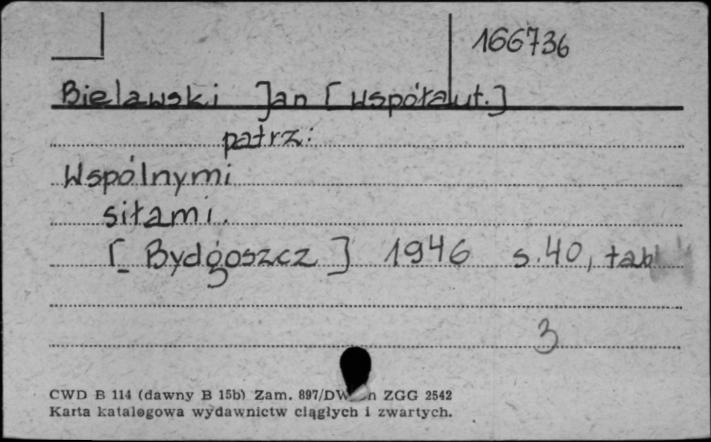 166736
Bielawski Jan [współaut.]
patrz:
Wspólnymi
siłami.
[Bydgoszcz] 1946 s.40, tabl
3
CWD B 114 (dawny B 15b) Zam. 897/DW ZGG 2542
Karta katalogowa wydawnictw ciągłych i zwartych.